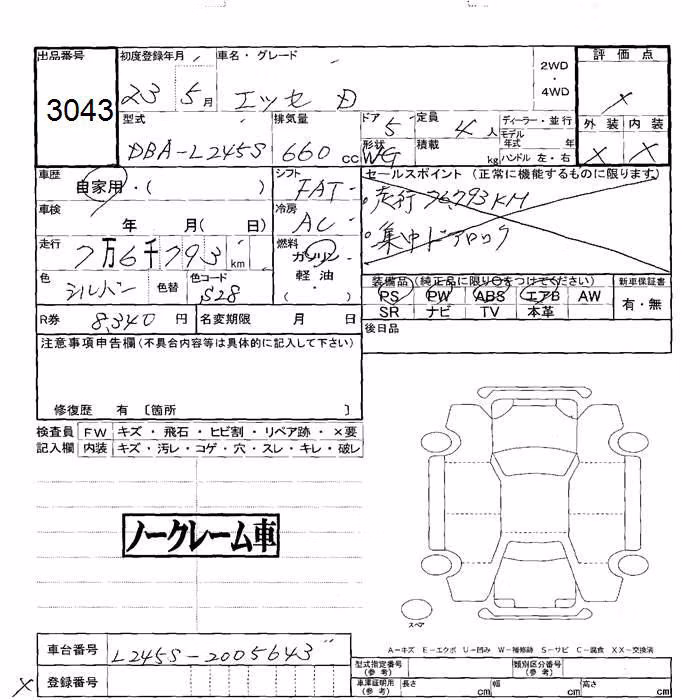 出品番号 初度登録年月 車名・グレード 2WD・4WD 評価点
3043 23 5月 エッセ D ×
型式 排気量 ドア 5 定員 4人 ディーラー・並行 外装 内装
モデル年式 年
DBA-L245S 660cc 形状 WG 積載 kg ハンドル 左・右 × ×
車歴 自家用・( ) シフト FAT セールスポイント (正常に機能するものに限ります。)
・走行 76,793KM
車検 年 月( 日) 冷房 AC ・集中ドアロック
走行 7万6千793km 燃料 ガソリン
軽油・( )
色 シルバー 色替 色コード S28 装備品 (純正品に限り○をつけてください) 新車保証書
PS PW ABS エアB AW 有・無
SR ナビ TV 本革
R券 8,340円 名変期限 月 日 後日品
注意事項申告欄(不具合内容等は具体的に記入して下さい)
修復歴 有 〔箇所 〕
検査員 FW キズ・飛石・ヒビ割・リペア跡・×要
記入欄 内装 キズ・汚レ・コゲ・穴・スレ・キレ・破レ
ノークレーム車
スペア
A-キズ E-エクボ U-凹み W-補修跡 S-サビ C-腐食 XX-交換済
車台番号 L245S-2005643
型式指定番号(参考) 類別区分番号(参考)
× 登録番号
車庫証明用(参考) 長さ cm 幅 cm 高さ cm